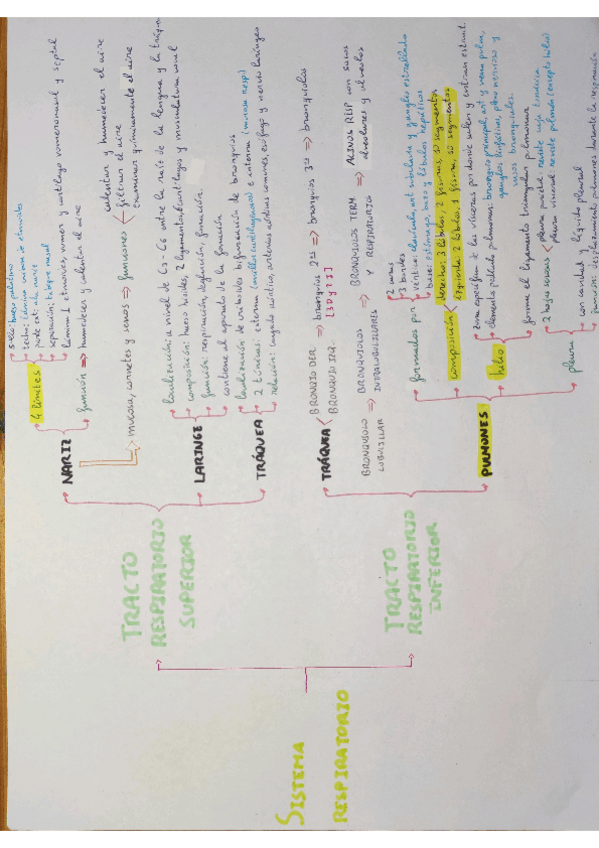 SISTEMA
RESPIRATORIO
TRACTO
RESPIRATORIO
SUPERIOR
NARIZ
4 límites
suelo: hueso palatino
techo: lámina cribosa de etmoides
parte ext: ala nariz
separación: tabique nasal
lámina ⊥ etmoides, vomer y cartílago vomeronasal y septal
función ⇒ humedecer y calentar el aire
mucosa, cornetes y senos ⇒ funciones
calentar y humedecer el aire
filtrar el aire
examinar químicamente el aire
LARINGE
localización: a nivel de C3 - C6 entre la raíz de la lengua y la tráquea
composición: hueso hioides, 2 ligamentos, 6 cartílagos y musculatura
función: respiración, deglución, fonación.
contiene el aparato de la fonación
TRÁQUEA
localización: de cricoides bifurcación de bronquios
2 túnicas: externa (anillos cartilaginosos) e interna (mucosa resp)
relación: cayado aórtico, arterias carótidas comunes, esófago y nervio laríngeo
TRACTO
RESPIRATORIO
INFERIOR
TRÁQUEA
BRONQUIO DER.
BRONQUIO IZQ.
⇒ bronquios 2º ⇒ bronquios 3º ⇒ bronquiolos
[3D y 2I]
BRONQUIOLO
LOBULILLAR
⇒ BRONQUIOLOS
INTRALOBULILLARES
⇒ BRONQUIOLOS TERM
Y RESPIRATORIO
⇒ ACINOS RESP con sacos
alveolares y alveolos
PULMONES
formados por
2 caras
3 bordes
vértice: clavícula, art subclavia y ganglio estrellado
base: estómago, bazo y lóbulos hepáticos
composición
derecho: 3 lóbulos, 2 fisuras, 10 segmentos
izquierdo: 2 lóbulos, 1 fisura, 10 segmentos
hilio
zona específica de las vísceras por donde salen y entran estruct.
elementos pedículo pulmonar: bronquio principal, art y vena pulm,
ganglios linfáticos, plexo nervioso y
vasos bronquiales.
forma el ligamento triangular pulmonar
pleura
2 hojas serosas
pleura parietal: reviste caja torácica
pleura visceral: reviste pulmón (excepto hilio)
con cavidad y líquido pleural
función: desplazamiento pulmones durante la respiración